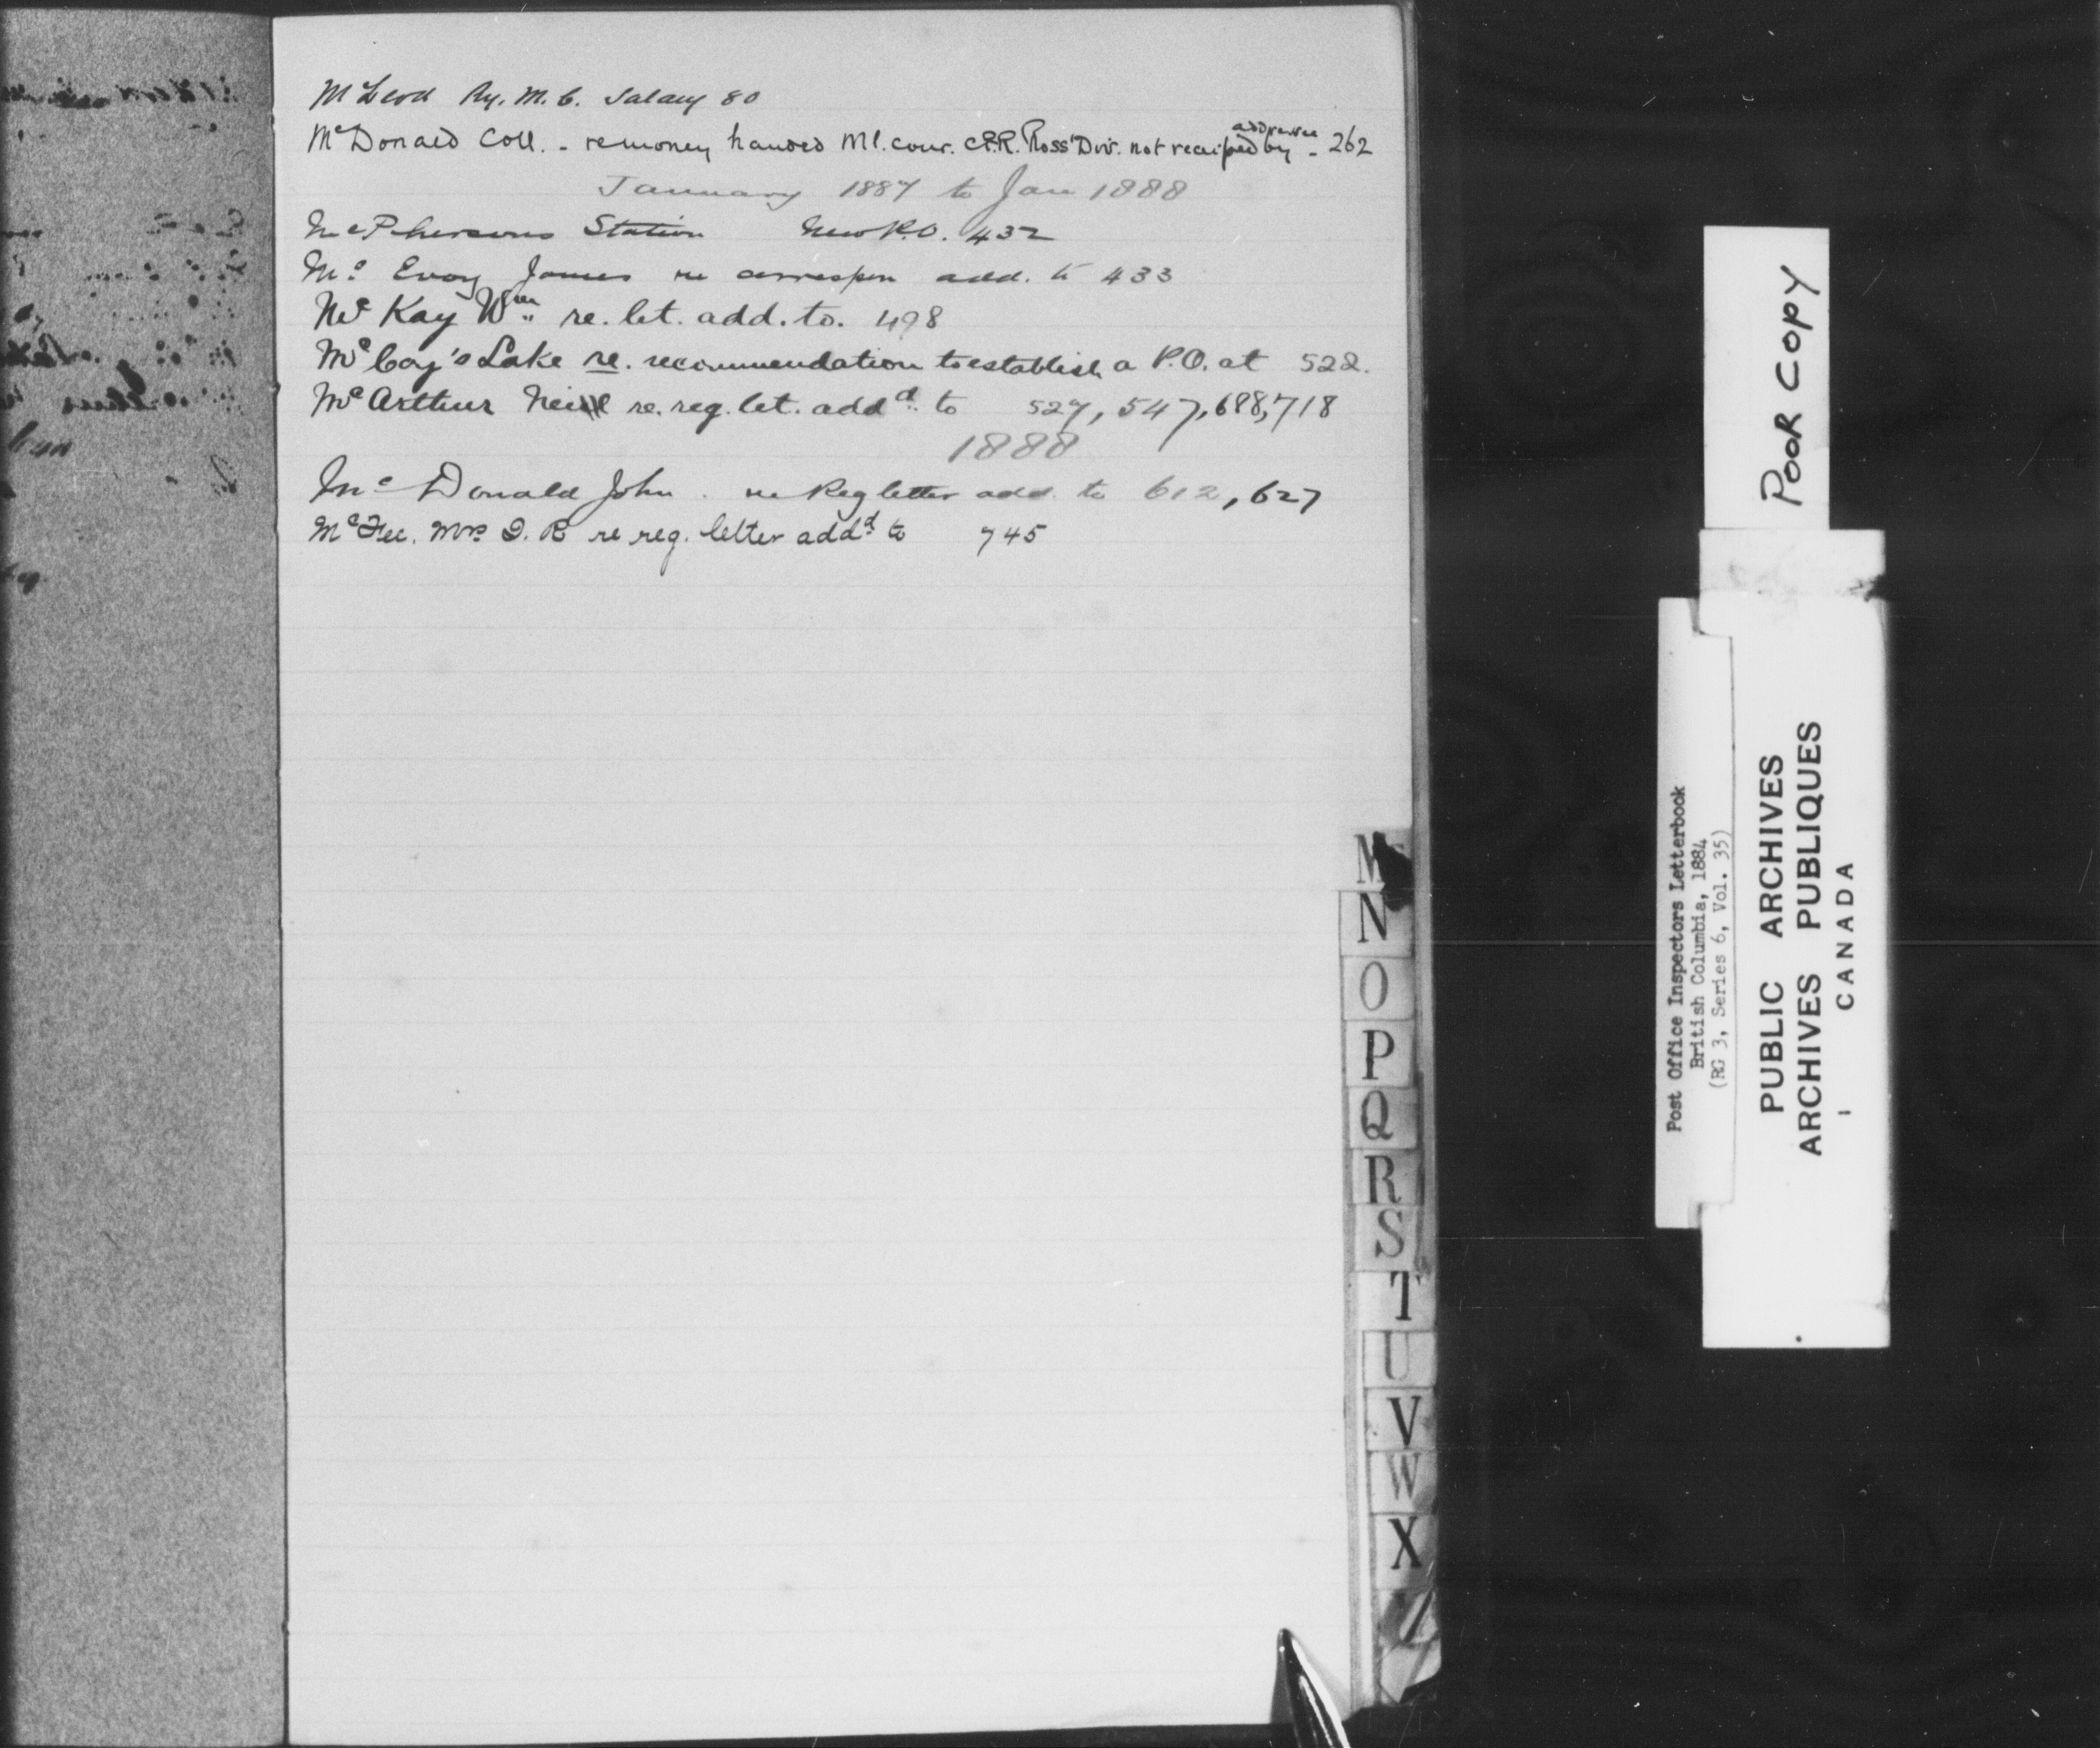 McLeod Ry. M. C. Salary 80
McDonald Coll. - re money handed Ml. cour. C.P.R. Ross' Div. not receipted by addressee - 262
January 1887 to Jan 1888
McPhersons Station New P.O. 432
Mc Evoy James re correspon add. to 433
McKay Wm re. let. add. to. 498
McCoy's Lake re. recommendation to establish a P.O. at 522.
McArthur Neil re. reg. let. addd to 527, 547, 688, 718
1888
McDonald John. re Reg letter add. to 612, 627
McFee. Mrs. D. R re reg. letter addd to 745
M
N
O
P
Q
R
S
T
U
V
W
X
POOR COPY
Post Office Inspectors Letterbook
British Columbia, 1884
(RG 3, Series 6, Vol. 35)
PUBLIC ARCHIVES
ARCHIVES PUBLIQUES
CANADA